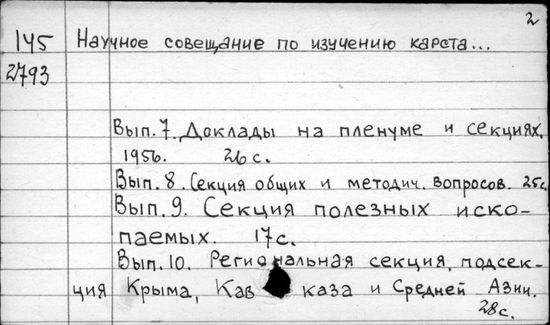 2
145 Научное совещание по изучению карста...
2793
Вып. 7. Доклады на пленуме и секциях.
1956. 26 с.
Вып. 8. Секция общих и методич. вопросов. 25с.
Вып. 9. Секция полезных иско-
паемых. 17с.
Вып. 10. Региональная секция, подсек-
ция Крыма, Кавказа и Средней Азии.
28с.